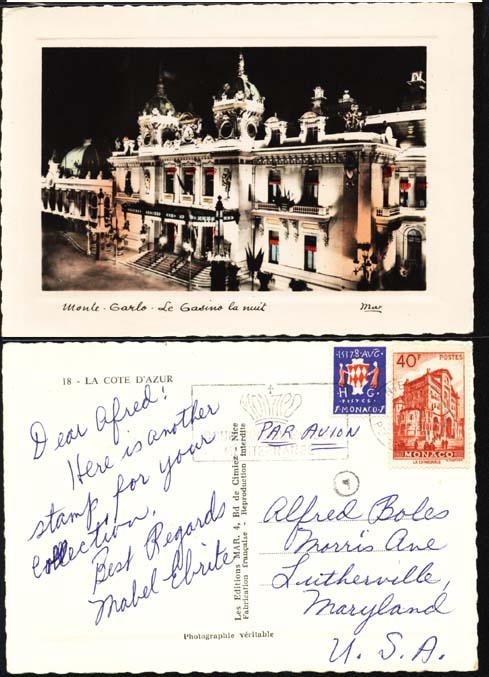 Monte - Carlo - Le Casino la nuit
Mar
18 - LA COTE D'AZUR
Dear Alfred!
Here is another
stamp for your
collection.
Best Regards
Mabel Ebrite
Les Editions MAR, 4, Bd de Cimiez - Nice
Fabrication française - Reproduction interdite
Photographie véritable
MONACO
PAR AVION
H G
MONACO
40F POSTES
MONACO
LA CATHEDRALE
Alfred Boles
Morris Ave
Lutherville,
Maryland
U. S. A.